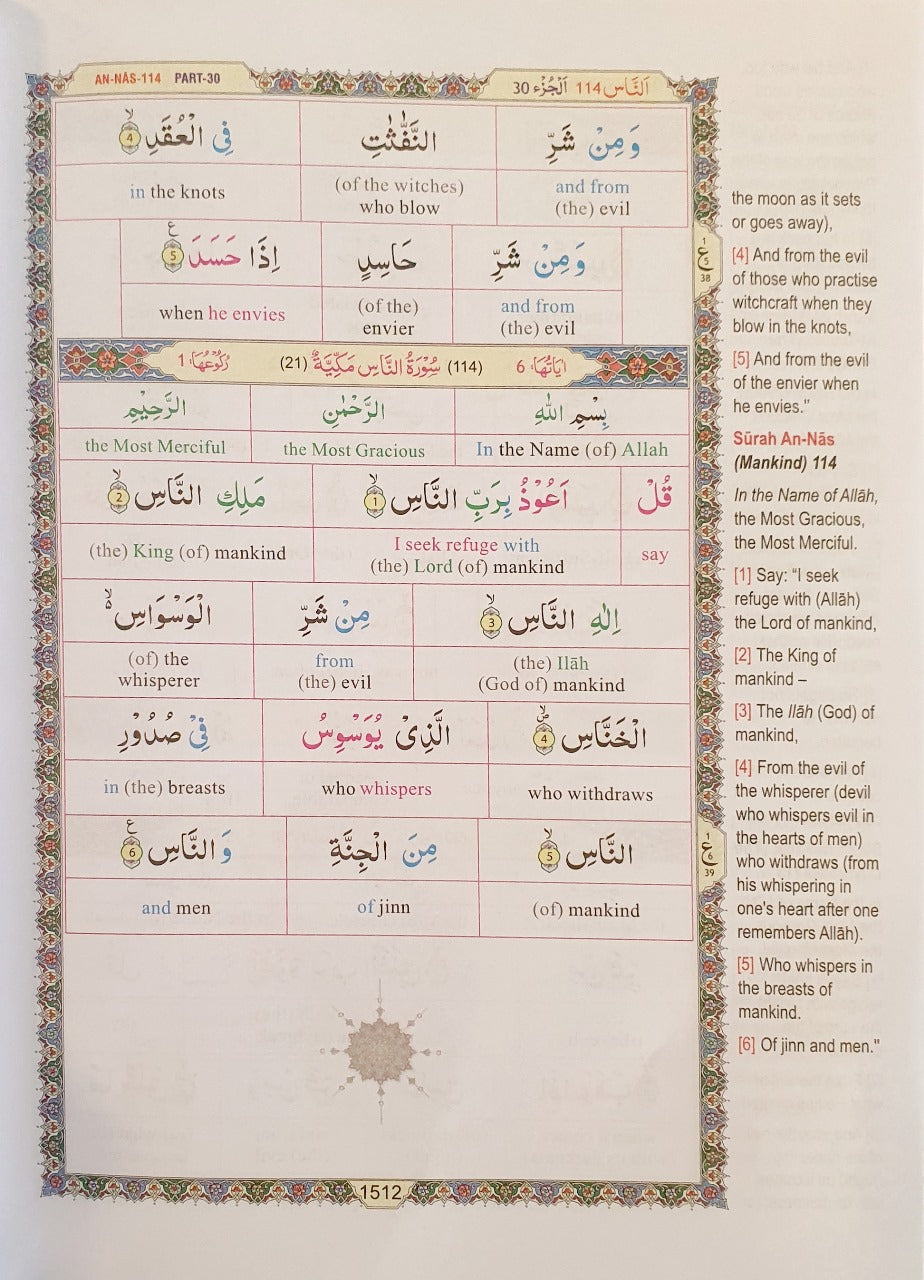 AN-NÂS-114 PART-30
اَلنَّاس 114 اَلْجُزْء 30
وَمِنْ شَرِّ النَّفّٰثٰتِ فِي الْعُقَدِ ۙ 4
and from (of the witches) in the knots
(the) evil who blow
وَمِنْ شَرِّ حَاسِدٍ اِذَا حَسَدَ ۧ 5
and from (of the) when he envies
(the) evil envier
اٰيَاتُهَا: 6 (114) سُوْرَةُ النَّاسِ مَكِّيَّةٌ (21) رُكُوْعُهَا: 1
بِسْمِ اللّٰهِ الرَّحْمٰنِ الرَّحِيْمِ
In the Name (of) Allah the Most Gracious the Most Merciful
قُلْ اَعُوْذُ بِرَبِّ النَّاسِ ۙ 1 مَلِكِ النَّاسِ ۙ 2
say I seek refuge with (the) King (of) mankind
(the) Lord (of) mankind
اِلٰهِ النَّاسِ ۙ 3 مِنْ شَرِّ الْوَسْوَاسِ ۙ۬
(the) Ilāh from (of) the
(God of) mankind (the) evil whisperer
الْخَنَّاسِ ۪ۙ 4 الَّذِيْ يُوَسْوِسُ فِيْ صُدُوْرِ
who withdraws who whispers in (the) breasts
النَّاسِ ۙ 5 مِنَ الْجِنَّةِ وَالنَّاسِ ۧ 6
(of) mankind of jinn and men
1512
1
ع
5
38
1
ع
6
39
the moon as it sets
or goes away),
[4] And from the evil
of those who practise
witchcraft when they
blow in the knots,
[5] And from the evil
of the envier when
he envies."
Sūrah An-Nās
(Mankind) 114
In the Name of Allāh,
the Most Gracious,
the Most Merciful.
[1] Say: "I seek
refuge with (Allāh)
the Lord of mankind,
[2] The King of
mankind –
[3] The Ilāh (God) of
mankind,
[4] From the evil of
the whisperer (devil
who whispers evil in
the hearts of men)
who withdraws (from
his whispering in
one's heart after one
remembers Allāh).
[5] Who whispers in
the breasts of
mankind.
[6] Of jinn and men."